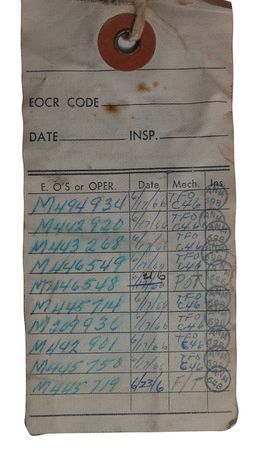 EOCR CODE
DATE INSP.
E. O'S or OPER. Date Mech. Ins
M494934 6/17/66 TFO C46
M442920 6/17/66 TFO C46
M443268 6/17/66 TFO C46
M446549 6/17/66 TFO C46
M446548 POT
M445714 6/17/60 TFO C46
M209936 6/17/60 TFO C46
M442901 6/17/66 TFO C46
M445758 6/17/66 TFO C46
M445719 6/23/6 F/T